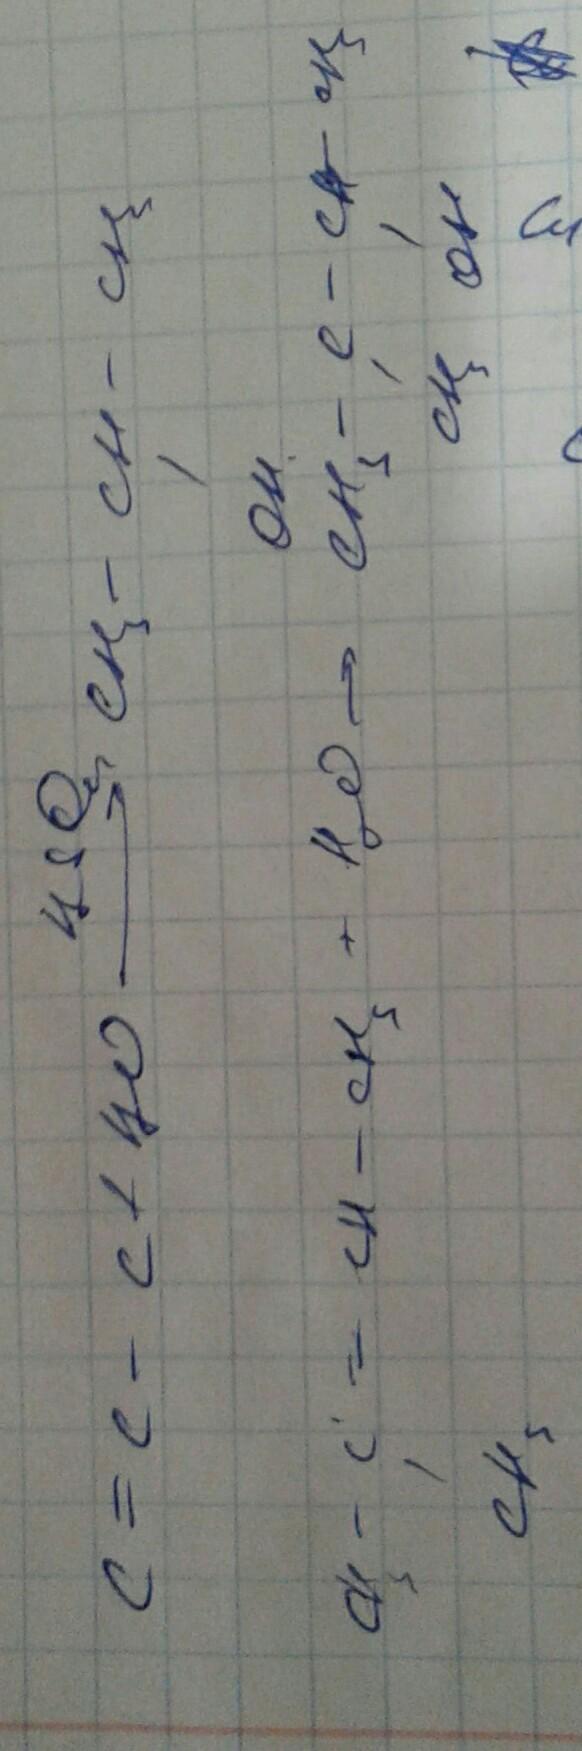 H₂SO₄
C = C - C + H₂O → CH₃ - CH - CH₃
OH
CH₃ - C = CH - CH₃ + H₂O → CH₃ - C - CH - CH₃
CH₃ CH₃ OH